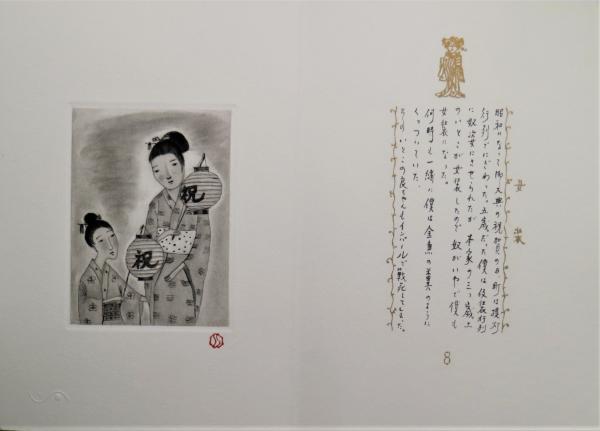 祝
祝
女装
昭和になって御大典の祝賀の日、町は提灯
行列でにぎわった。五歳だった僕は仮装行列
に奴姿にさせられたが、本家の三つ歳上
のいとこが女装したので奴がいやで僕も
女装になった。
何時も一緒に僕は金魚の糞のように
くっついていた。
そのいとこの良ちゃんもインパールで戦死してしまった。
8